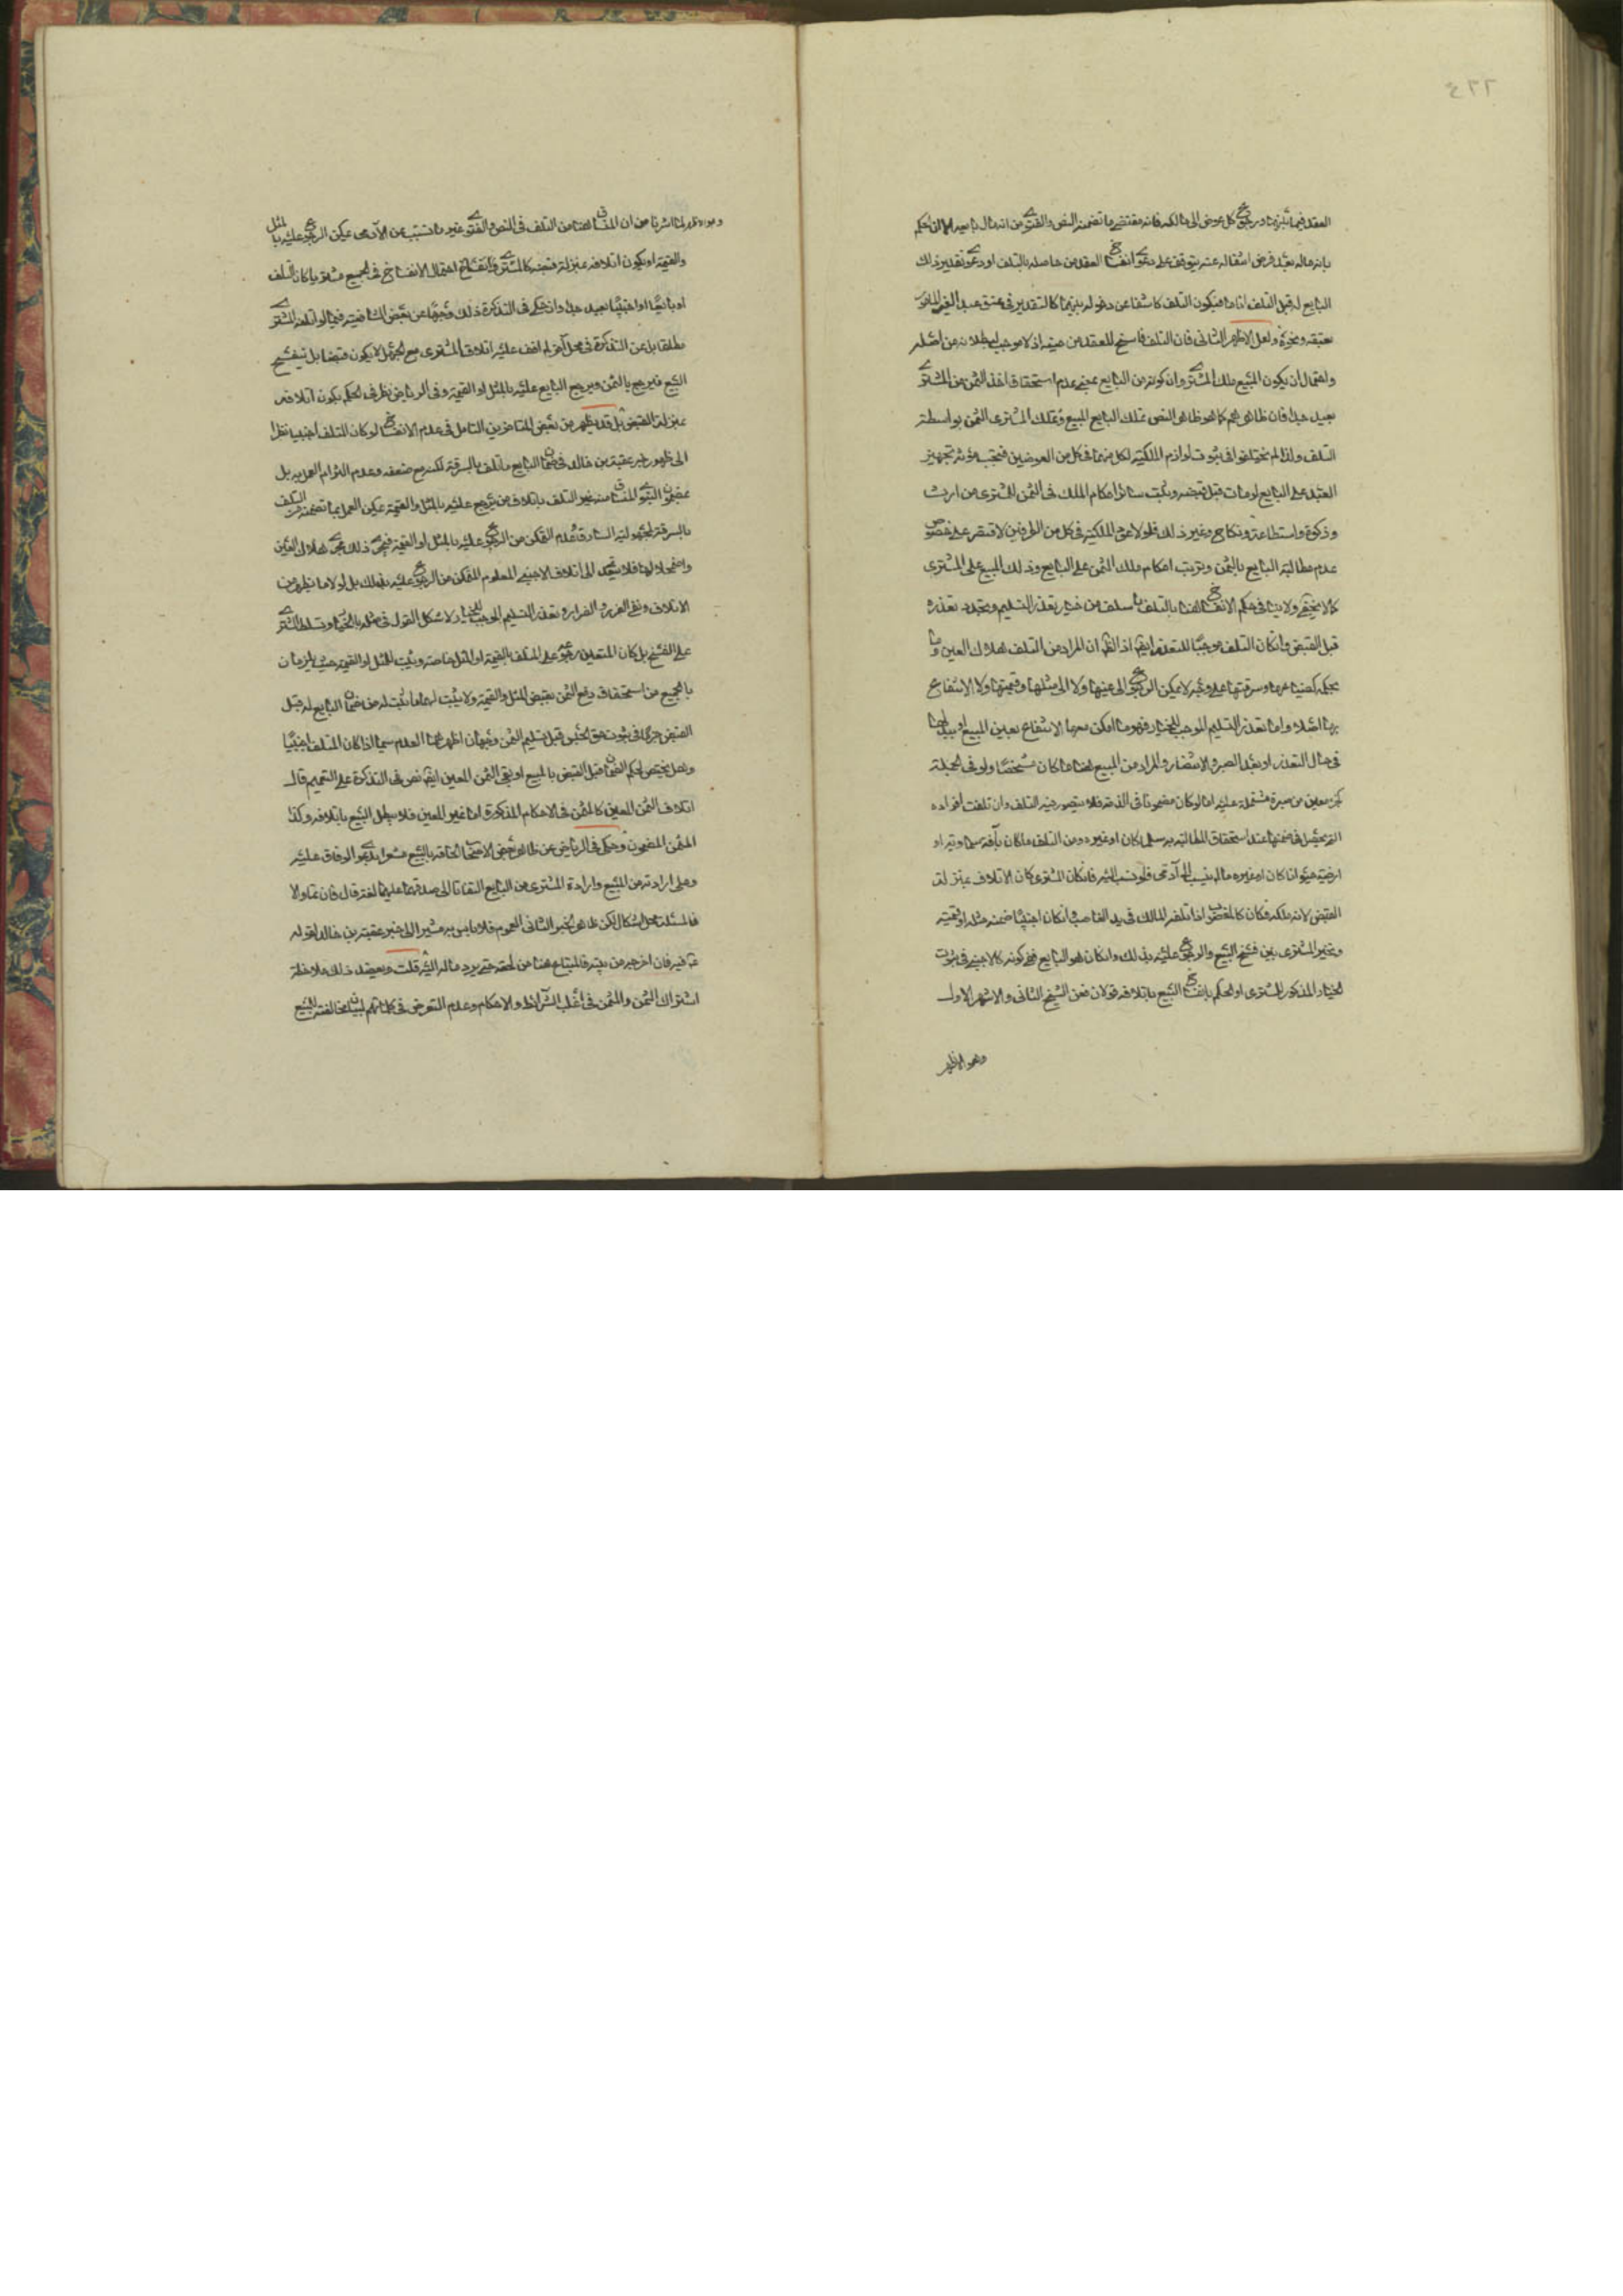 ٤٢٢
العقد فيما بينهما ورجوع كل عوض الى مالكه فانه مقتضى ما تضمنه النص والفتوى من انه مال بايعه الا ان الحكم
بانه ماله بعد فرض انتقاله عنه يتوقف على دعوى انفساخ العقد من حاصله بالتلف او دعوى تقدير ذلك
البايع له قبل التلف اناما فيكون التلف كاشفا عن دخوله بينهما كالتقدير في عتق عبد الغير المامور
بعتقه ونحوه ولعل الاظهر الثاني فان التلف فاسخ للعقد من حينه اذ لا موجب لبطلانه من اصله
واحتمال ان يكون المبيع ملك المشترى وان كونه من البايع بمعنى عدم استحقاق اخذ الثمن من المشترى
بعيد جدا فان ظاهرهم كما هو ظاهر النص تملك البايع للمبيع وتملك المشترى الثمن بواسطة
التلف ولذا لم يختلفوا في ثبوت لوازم الملكية لكل منهما في كل من العوضين فتجب مؤنة تجهيز
العبد على البايع لو مات قبل قبضه وثبت سائر احكام الملك في الثمن للمشترى من ارث
وزكوة واستطاعة ونكاح وغير ذلك فلولا عود الملكية في كل من الطرفين لاقتصر على خصوص
عدم مطالبة البايع بالثمن وترتب احكام ملك الثمن على البايع وذلك المبيع على المشترى
كما لا يخفى ولا ينافي حكم الانفساخ هنا بالتلف ما سلف من خيار تعذر التسليم وتجدد تعذره
قبل القبض وان كان التلف موجبا للتعذر ايضا اذ الظاهر ان المراد من التلف هلاك العين وما
بحكمه كضياعها وسرقتها على وجه لا يمكن الرجوع الى عينها ولا الى مثلها وقيمتها ولا الانتفاع
بها اصلا واما تعذر التسليم الموجب للخيار فهو ما امكن معها الانتفاع بعين المبيع او ببدلها
في حال التعذر او بعد الصبر والانتظار والمراد من المبيع هنا ما كان مشخصا ولو في الجملة
كجزء معين من صبرة مشتملة عليه اما لو كان مضمونا في الذمة فلا يتصور فيه التلف وان تلفت افراده
التي يحصل في ضمنها عند استحقاق المطالبة به سلما كان او غيره ومن التلف ما كان بآفة سماوية او
ارضية حيوانا كان او غيره ما لم ينسب الى آدمى فلو نسب اليه فان كان المشترى كان الاتلاف بمنزلة
القبض لانه ملكه فكان كالمغصوب اذا اتلفه المالك في يد الغاصب وان كان اجنبيا ضمنه مثله او قيمته
وتخير المشترى بين فسخ البيع والرجوع عليه بذلك وان كان هو البايع ففي كونه كالاجنبي في ثبوت
الخيار المذكور للمشترى او الحكم بانفساخ البيع باتلافه قولان فعن الشيخ الثاني والاشهر الاول
وهو الاظهر
وهو الاظهر لما اشرنا من ان المنساق هنا من التلف في النص والفتوى غير ما تسبب من الآدمى يمكن الرجوع عليه بالمثل
والقيمة او يكون اتلافه بمنزلة قبضه كالمشترى وانفساخ احتمال الانفساخ في الجميع مشتريا كان المتلف
او بايعا او اجنبيا بعيد جدا وان حكى في التذكرة ذلك وجها عن بعض الشافعية فيما لو اتلفه المشترى
مطلقا بل عن التذكرة في محل آخر لم اقف عليه اتلاف المشترى مع الجهل لا يكون قبضا بل ينفسخ
البيع فيرجع بالثمن ويرجع البايع عليه بالمثل او القيمة وفي الرياض نظر في الحكم بكون اتلافه
بمنزلة القبض بل قد يظهر من بعض المتاخرين التامل في عدم الانفساخ لو كان المتلف اجنبيا نظرا
الى ظهور خبر عقبة بن خالد في ضمان البايع ما تلف بالسرقة لكنه مع ضعفه وعدم التزام العمل به بل
بمضمون النبوى المنساق منه غير التلف باتلاف من يرجع عليه بالمثل والقيمة يمكن العمل بما تضمنه من التلف
بالسرقة لمجهولية السارق وعدم التمكن من الرجوع عليه بالمثل او القيمة فيجرى ذلك مجرى هلاك العين
واضمحلالها فلا يتعدى الى اتلاف الاجنبي المعلوم المتمكن من الرجوع عليه بذلك بل لولا ما يظهر من
الاتلاف ونفي الغرر والضرار وتعذر التسليم الموجب للخيار لاشكل القول في مثله بالخيار وتسلط المشترى
على الفسخ بل كان المتعين رجوعه على المتلف بالقيمة او المثل خاصة ويثبت المثل او القيمة حيث يلزمان
بالجميع من استحقاق دفع الثمن بقبض المثل والقيمة ولا يثبت لهما ما ثبت له من ضمان البايع له قبل
القبض جزما وفي ثبوت حق الحبس قبل تسليم الثمن وجهان اظهرهما العدم سيما اذا كان المتلف اجنبيا
وهل يختص الحكم الضمان قبل القبض بالمبيع او يبقى الثمن المعين ايضا نص في التذكرة على التعميم قال
اتلاف الثمن المعين كالمثمن في الاحكام المذكورة اما غير المعين فلا يبطل البيع باتلافه وكذا
المثمن المضمون وحكى في الرياض عن ظاهر بعض الاصحاب الحاقه بالمبيع مشعرا بدعوى الوفاق عليه
وعلى ارادته من المبيع وارادة المشترى من البايع التفاتا الى صدقهما عليهما لغة قال فان تم والا
فالمسئلة محل اشكال لكن ظاهر الخبر الثاني العموم فلا باس به مشيرا الى خبر عقبة بن خالد لقوله
ع فيه فان اخرجه من بيته فالمبتاع ضامن لحقه حتى يرد ماله اليه قلت ويعضد ذلك ملاحظة
اشتراك الثمن والمثمن في اغلب الشرائط والاحكام وعدم التعرض في كلماتهم لبيان مخالفته للمبيع